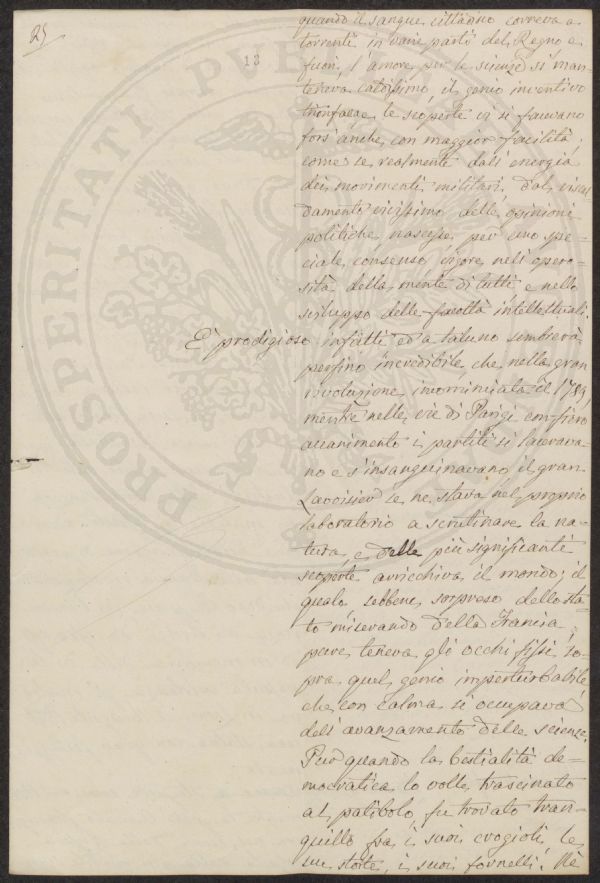 25
18
quando il sangue cittadino correva a
torrenti in varie parti del Regno e
fuori, l'amore per le scienze si man=
teneva caldissimo, il genio inventivo
trionfava, le scoperte vi si facevano
fors' anche con maggior facilità,
come se realmente dall'energia
dei movimenti militari, dal riscal=
damento vivissimo delle opinioni
politiche, nascesse per uno spe=
ciale consenso vigore nell'opero=
sità della mente di tutti e nello
sviluppo delle facoltà intellettuali.
È prodigioso infatti ed a taluno sembrerà
perfino incredibile, che nella gran
rivoluzione, incominciata il 1789,
mentre nelle vie di Parigi con fiero
accanimento i partiti si laceravа=
no e s'insanguinavano il gran
Lavoisier se ne stava nel proprio
laboratorio a scrutinare la na=
tura, e delle più significanti
scoperte arricchiva il mondo; il
quale, sebbene sorpreso dello sta=
to miserando della Francia,
pure teneva gli occhi fissi so=
pra quel genio imperturbabile
che con calma si occupava
dell'avanzamento delle scienze.
Pur quando la bestialità de=
mocratica lo volle trascinato
al patibolo, fu trovato tran=
quillo fra i suoi crogioli, le
sue storte, i suoi fornelli. Nè
PROSPERITATI PUBLI